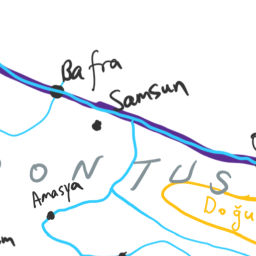 Bafra
Samsun
ONTUS
Amasya
Doğu